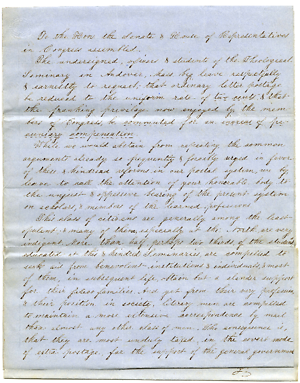 To the Hon the Senate & House of Representatives
in Congress assembled.
The undersigned, officers & students of the Theological
Seminary in Andover, Mass, beg leave respectfully
& earnestly to request, that ordinary letter postage
be reduced to the uniform rate of two cents, & that
the franking privilege now enjoyed by the mem-
bers of Congress, be commuted for an
compensation.
While we would abstain from repeating the common
arguments already so frequently & forcibly urged in favor
of these & kindred reforms in our postal system, we beg
leave to call the attention of your honorable body to
the unequal & oppressive bearing of the present system
on scholars, & members of the learned professions.
This class of citizens are generally among the least
& many of them, especially at the North are very
indigent. More than half, perhaps two thirds, of the students
educated at this & kindred Seminaries are compelled to
seek aid from benevolent institutions; & ordinarily most
of them, in subsequent life, obtain but a slender support
for their future families. And yet from their very profession
& their position in society, literary men are compelled
to maintain a more extensive correspondence by mail
than almost any other class of men. The consequence is,
that they are most unduly taxed, in the severe mode
of extra postage, for the support of the general government